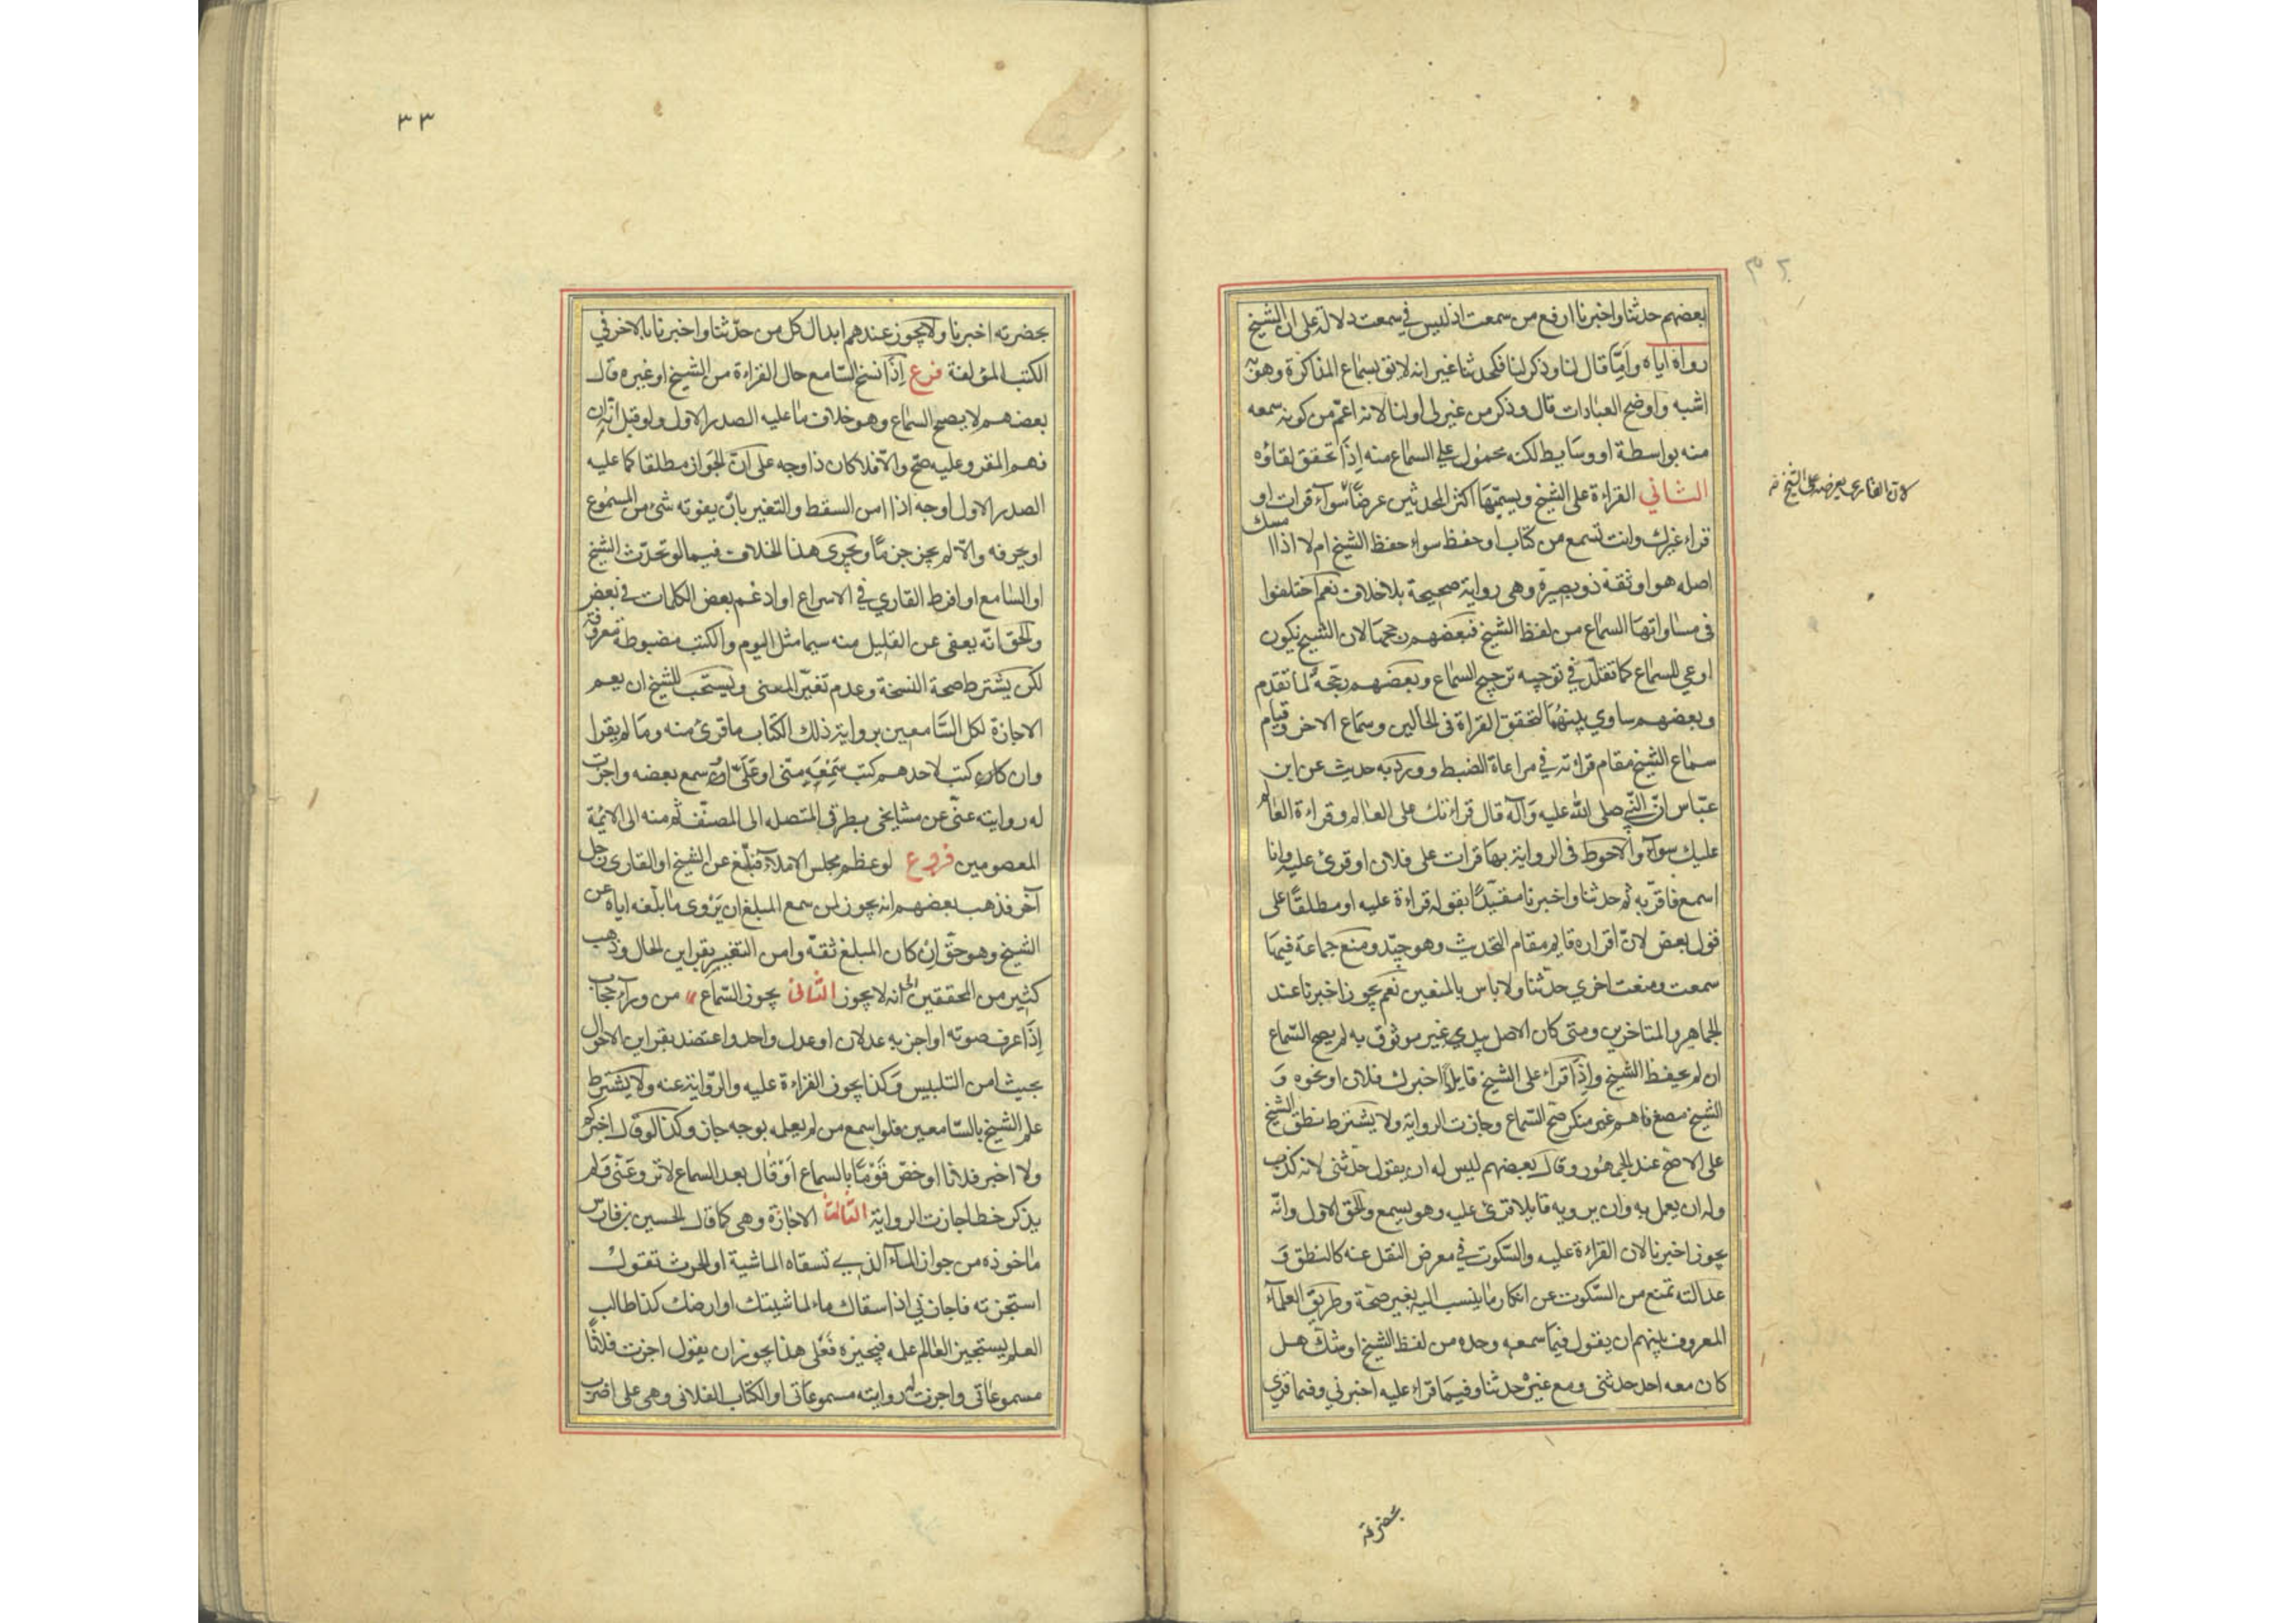 بعضهم حدثنا واخبرنا ارفع من سمعت اذ ليس في سمعت دلالة على ان الشيخ
رواه اياه وامّا قال لنا وذكر لنا فكحدثنا غير انه لايق بسماع المذاكرة وهو به
اشبه واوضح العبارات قال وذكر من غير لي او لنا لانه اعمّ من كونه سمعه
منه بواسطة او وسايط لكنه محمول على السماع منه اذا تحقق لقاؤه
الثاني القراءة على الشيخ ويسمّيها اكثر المحدثين عرضًا سواء قرات او
قراء غيرك وانت تسمع من كتاب او حفظ سواء حفظ الشيخ ام لا اذا امسك
اصله هو او ثقة ذو بصيرة وهى رواية صحيحة بلا خلاف نعم اختلفوا
فى مساواتها السماع من لفظ الشيخ فبعضهم رجحها لان الشيخ يكون
اوعي للسماع كما تقدّم في توجيه ترجيح السماع وبعضهم رجّحه لما تقدم
وبعضهم ساوي بينهما لتحقق القراة فى الحالين وسماع الاخر وقيام
سماع الشيخ مقام قراءته في مراعاة الضبط وورد به حديث عن ابن
عبّاس انّ النّبي صلى الله عليه وآله قال قراءتك على العالم وقراءة العالم
عليك سواء والاحوط فى الرواية بها قرات على فلان او قرئ عليه وانا
اسمع فاقرّ به ثم حدثنا واخبرنا مقيّدًا بقوله قراءة عليه او مطلقًا على
قول بعض لانّ اقراره قايم مقام التحديث وهو جيّد ومنع جماعة فيها
سمعت ومنعت اخري حدّثنا ولا باس بالمنعين نعم يجوز اخبرنا عند
الجماهير والمتاخرين ومتى كان الاصل بيدي غير موثوق به لم يصح السّماع
ان لم يحفظ الشيخ واذا قراء على الشيخ قايلاً اخبرك فلان او نحوه و
الشيخ مصغ فاهم غير منكر صحّ السّماع وجازت الرواية ولا يشترط نطق الشيخ
على الاصحّ عند الجمهور وقال بعضهم ليس له ان يقول حدّثنى لانه كذب
وله ان يعمل به وان يرويه قايلا قرئ عليه وهو يسمع والحق الاول وانّه
يجوز اخبرنا لان القراءة عليه والسّكوت في معرض النقل عنه كالنطق و
عدالته تمنع من السّكوت عن انكار ما ينسب اليه بغير صحّة وطريق العلماء
المعروف بينهم ان يقول فيما سمعه وحده من لفظ الشيخ او شكّ هل
كان معه احد حدثنى ومع غيره حدثنا وفيما قراء عليه اخبرني وفيما قري
لان القاري يعرضه على الشيخ
بحضرته
٣٣
بحضرته اخبرنا ولا يجوز عندهم ابدال كل من حدّثنا واخبرنا بالاخر في
الكتب المؤلفة فرع اذا نسخ السّامع حال القراءة من الشيخ او غيره قال
بعضهم لا يصح السماع وهو خلاف ما عليه الصدر الاول ولو قيل انّه ان
فهم المقروء عليه صحّ والّا فلا كان ذا وجه على انّ الجواز مطلقا كما عليه
الصدر الاول اوجه اذا امن السقط والتغير بانّ يفوته شئ من المسموع
او يحرفه والّا لم يجز جزمًا ويجرى هذا الخلاف فيما لو تحدّث الشيخ
او السّامع او افرط القاري في الاسراع او ادغم بعض الكلمات في بعض
والحق انّه يعفى عن القليل منه سيما مثل اليوم والكتب مضبوطة معروفة
لكن يشترط صحة النسخة وعدم تغيّر المعنى ويستحب للشيخ ان يعم
الاجازة لكل السّامعين برواية ذلك الكتاب ما قرئ منه وما لم يقرا
وان كان كتب لاحدهم كتب سَمِعَه منّى او عَلَىَّ او سمع بعضه واجزت
له روايته عنّى عن مشايخى بطرقى المتصله الى المصنّف ثم منه الى الائمة
المعصومين فروع لو عظم مجلس الاملاء فبلّغ عن الشيخ او القارى رجل
آخر فذهب بعضهم انه يجوز لمن سمع المبلغ ان يروى ما بلّغه اياه عن
الشيخ وهو حقّ ان كان المبلغ ثقة وامن التغيير بقراين الحال وذهب
كثير من المحققين الى انه لا يجوز الثّانى يجوز السّماع من وراء حجاب
اذا عرف صوته او اخبر به عدلان او عدل واحد واعتضد بقراين الاحوال
بحيث امن التلبيس وكذا يجوز القراءة عليه والرّواية عنه ولا يشترط
علم الشيخ بالسّامعين فلو اسمع من لم يعلمه بوجه جاز وكذا لو قال اخبركم
ولا اخبر فلانا او خصّ قَوْمًا بالسماع اَوْ قال بعد السماع لا تروِ عَنّى وَلم
يذكر خطا جازت الرواية الثّالث الاجازة وهى كما قال الحسين بن فارس
ماخوذه من جواز الماء الذي تسقاه الماشية او الحرث تقول
استجزته فاجازني اذا سقاك ماء لماشيتك او ارضك كذا طالب
العلم يستجيز العالم علمه فيجيزه فَعَلى هذا يجوز ان يقول اجزت فلانًا
مسموعاتى واجزت له رواية مسموعاتى او الكتاب الفلانى وهى على اضرب